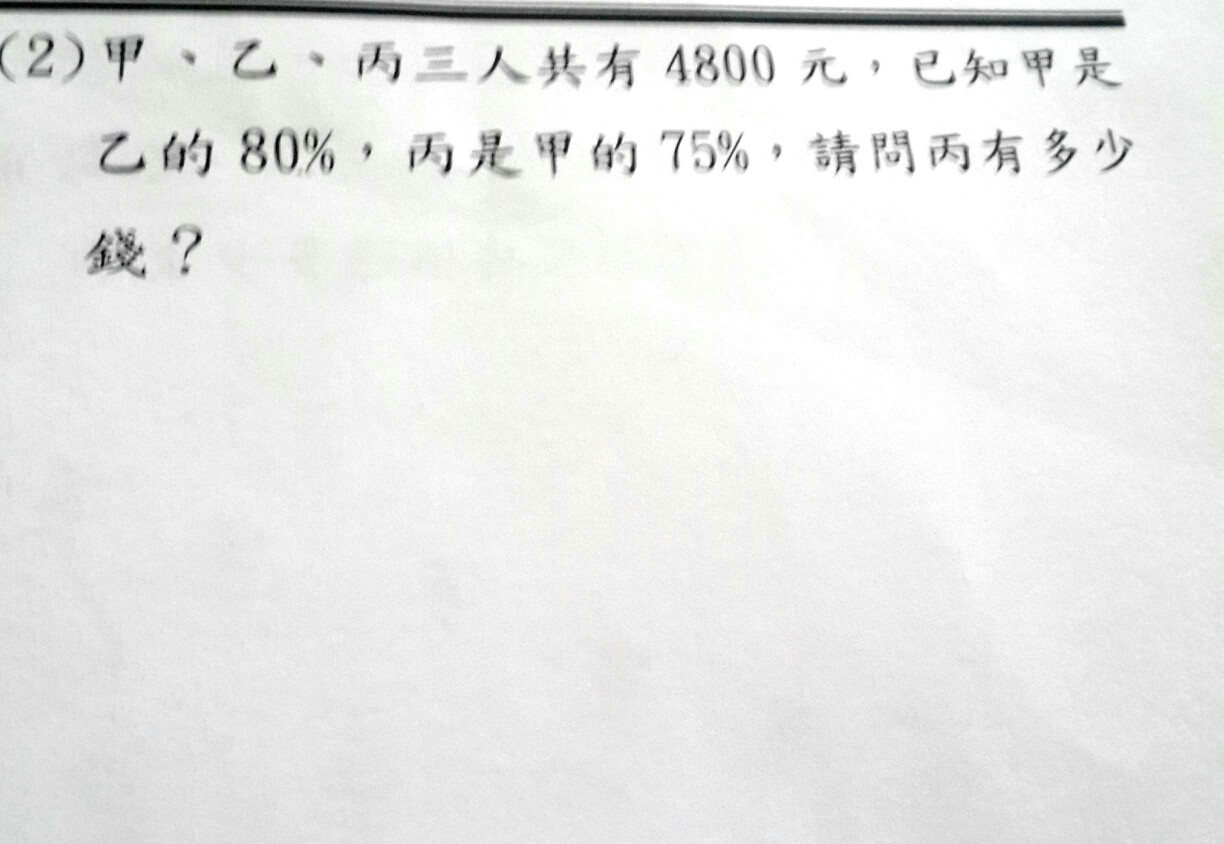 (2)甲、乙、丙三人共有 4800 元，已知甲是
乙的 80%，丙是甲的 75%，請問丙有多少
錢？